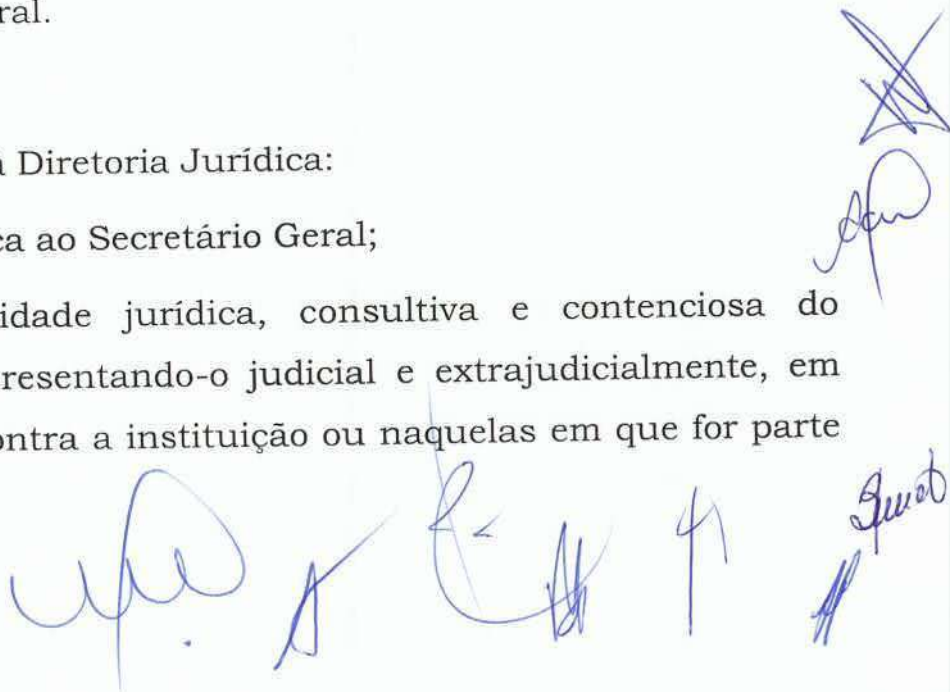 ral.
a Diretoria Jurídica:
ca ao Secretário Geral;
idade jurídica, consultiva e contenciosa do
resentando-o judicial e extrajudicialmente, em
ontra a instituição ou naquelas em que for parte